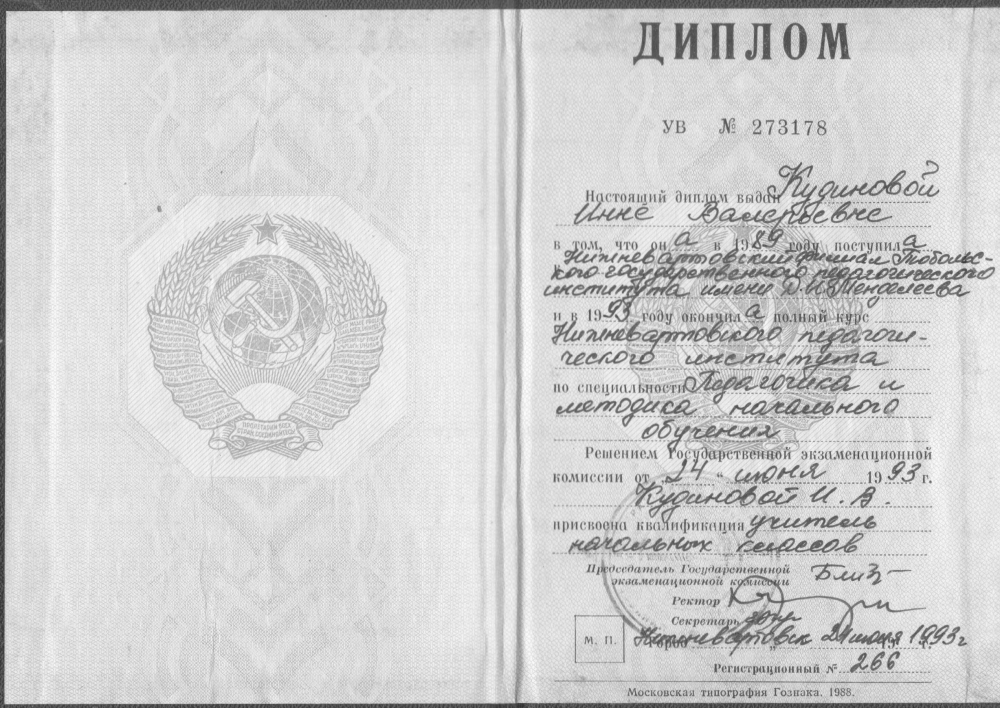 ДИПЛОМ
УВ № 273178
Настоящий диплом выдан Кудиновой
Инне Валерьевне
в том, что он а в 1989 году поступил а
Нижневартовский филиал Тобольс-
кого государственного педагогического
института имени Д.И. Менделеева
и в 1993 году окончил а полный курс
Нижневартовского педагоги-
ческого института
по специальности Педагогика и
методика начального
обучения
Решением Государственной экзаменационной
комиссии от „24" июня 1993 г.
Кудиновой И. В.
присвоена квалификация учитель
начальных классов
Председатель Государственной
экзаменационной комиссии
Ректор
Секретарь
М. П. Город Нижневартовск 24 июня 1993 г
Регистрационный № 266
Московская типография Гознака. 1988.